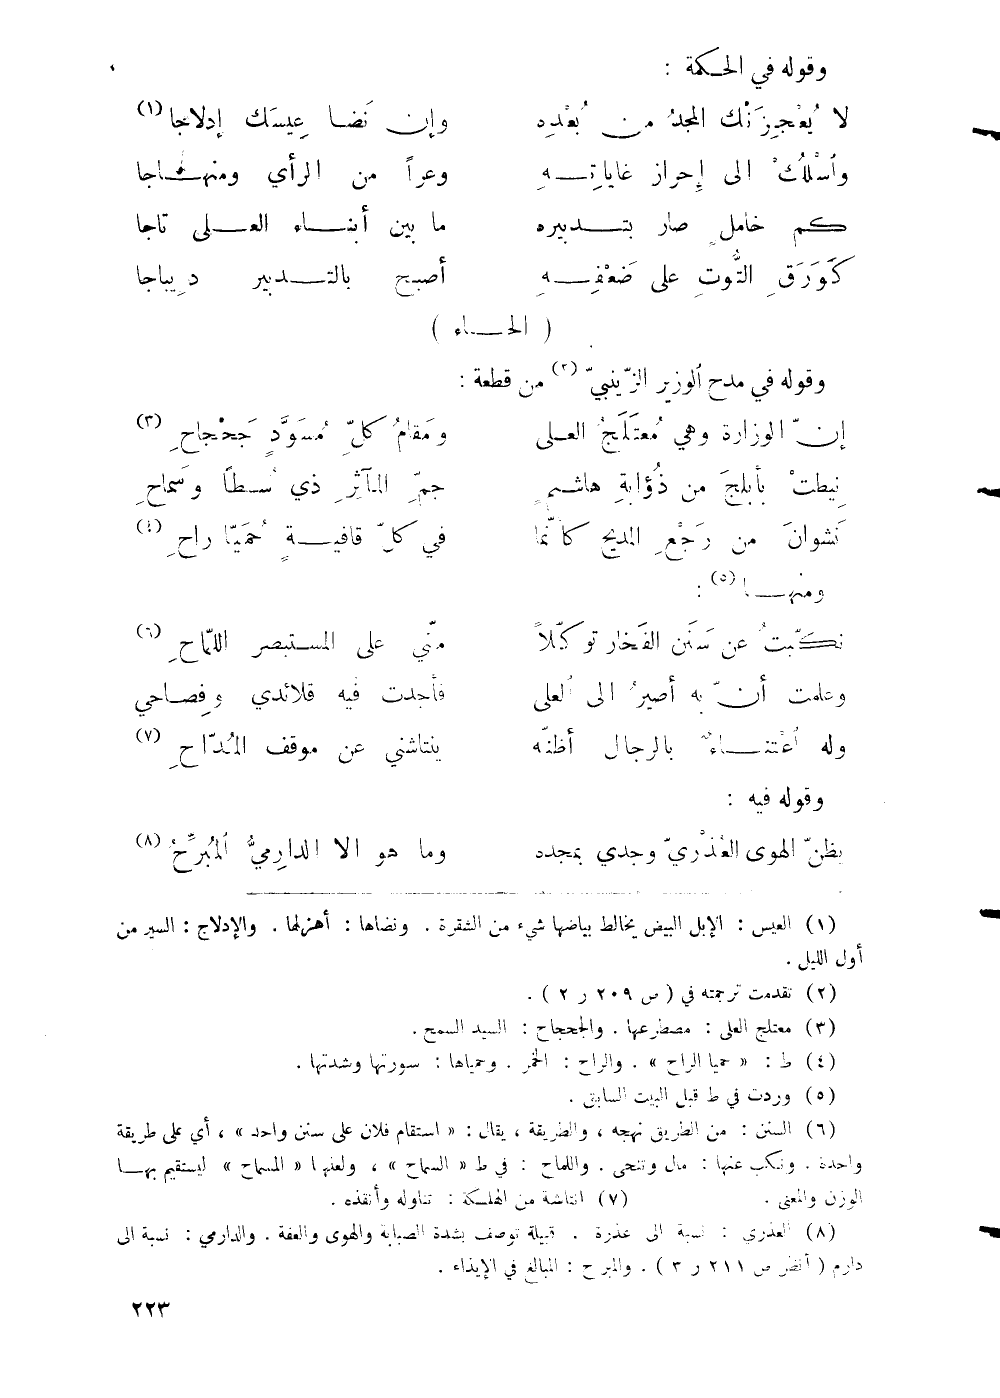 وقوله في الحكمة :
لا يُعْجِزَنْك المجدُ من بُعْدِه وإن نَضا عِيسَك إدلاجا (١)
وأسْلُكْ الى إحراز غاياتِهِ وعراً من الرأي ومنهاجا
كم خاملٍ صار بتدبيره ما بين أبناء العلى تاجا
كَوَرَقِ التُّوتِ على ضَعْفِهِ أصبح بالتدبير دِيباجا
( الحاء )
وقوله في مدح الوزير الزّينبيّ (٢) من قطعة :
إنّ الوزارة وهي مُعتَلَجُ العلى ومَقامُ كلِّ مُسَوَّدٍ جَحْجاحِ (٣)
نِيطتْ بأبلجَ من ذُؤابةِ هاشمٍ جمِّ المآثِرِ ذي سُطاً وسَماحِ
نَشوانَ من رَجْعِ المديح كأنّما في كلّ قافيةٍ حُمَيّا راحِ (٤)
ومنها (٥) :
نكّبتُ عن سَنَن الفَخار توكّلاً منّي على المستبصر اللمّاحِ (٦)
وعلمت أنّ به أصيرُ الى العلى فأجدت فيه قلائدي وفِصاحي
وله اعْتناءٌ بالرجال أظنّه ينتاشني عن موقف المُدّاحِ (٧)
وقوله فيه :
يظنّ الهوى العُذْريّ وجدي بمجده وما هو الا الدارِميُّ المُبرِّحُ (٨)
(١) العيس : الإبل البيض يخالط بياضها شيء من الشقرة . ونضاها : أهزلها . والإدلاج : السير من
أول الليل .
(٢) تقدمت ترجمته في ( ص ٢٠٩ ر ٢ ) .
(٣) معتلج العلى : مصطرعها . والجحجاح : السيد السمح .
(٤) ط : « حميا الراح » . والراح : الخمر . وحمياها : سورتها وشدتها .
(٥) وردت في ط قبل البيت السابق .
(٦) السنن : من الطريق نهجه ، والطريقة ، يقال : « استقام فلان على سنن واحد » ، أي على طريقة
واحدة . ونكب عنها : مال وتنحى . واللماح : في ط « السماح » ، ولعلها « المسماح » ليستقيم بها
الوزن والمعنى . (٧) انتاشه من الهلكة : تناوله وأنقذه .
(٨) العذري : نسبة الى عذرة . قبيلة توصف بشدة الصبابة والهوى والعفة . والدارمي : نسبة الى
دارم ( أنظر ص ٢١١ ر ٣ ) . والمبرح : المبالغ في الإيذاء .
٢٢٣